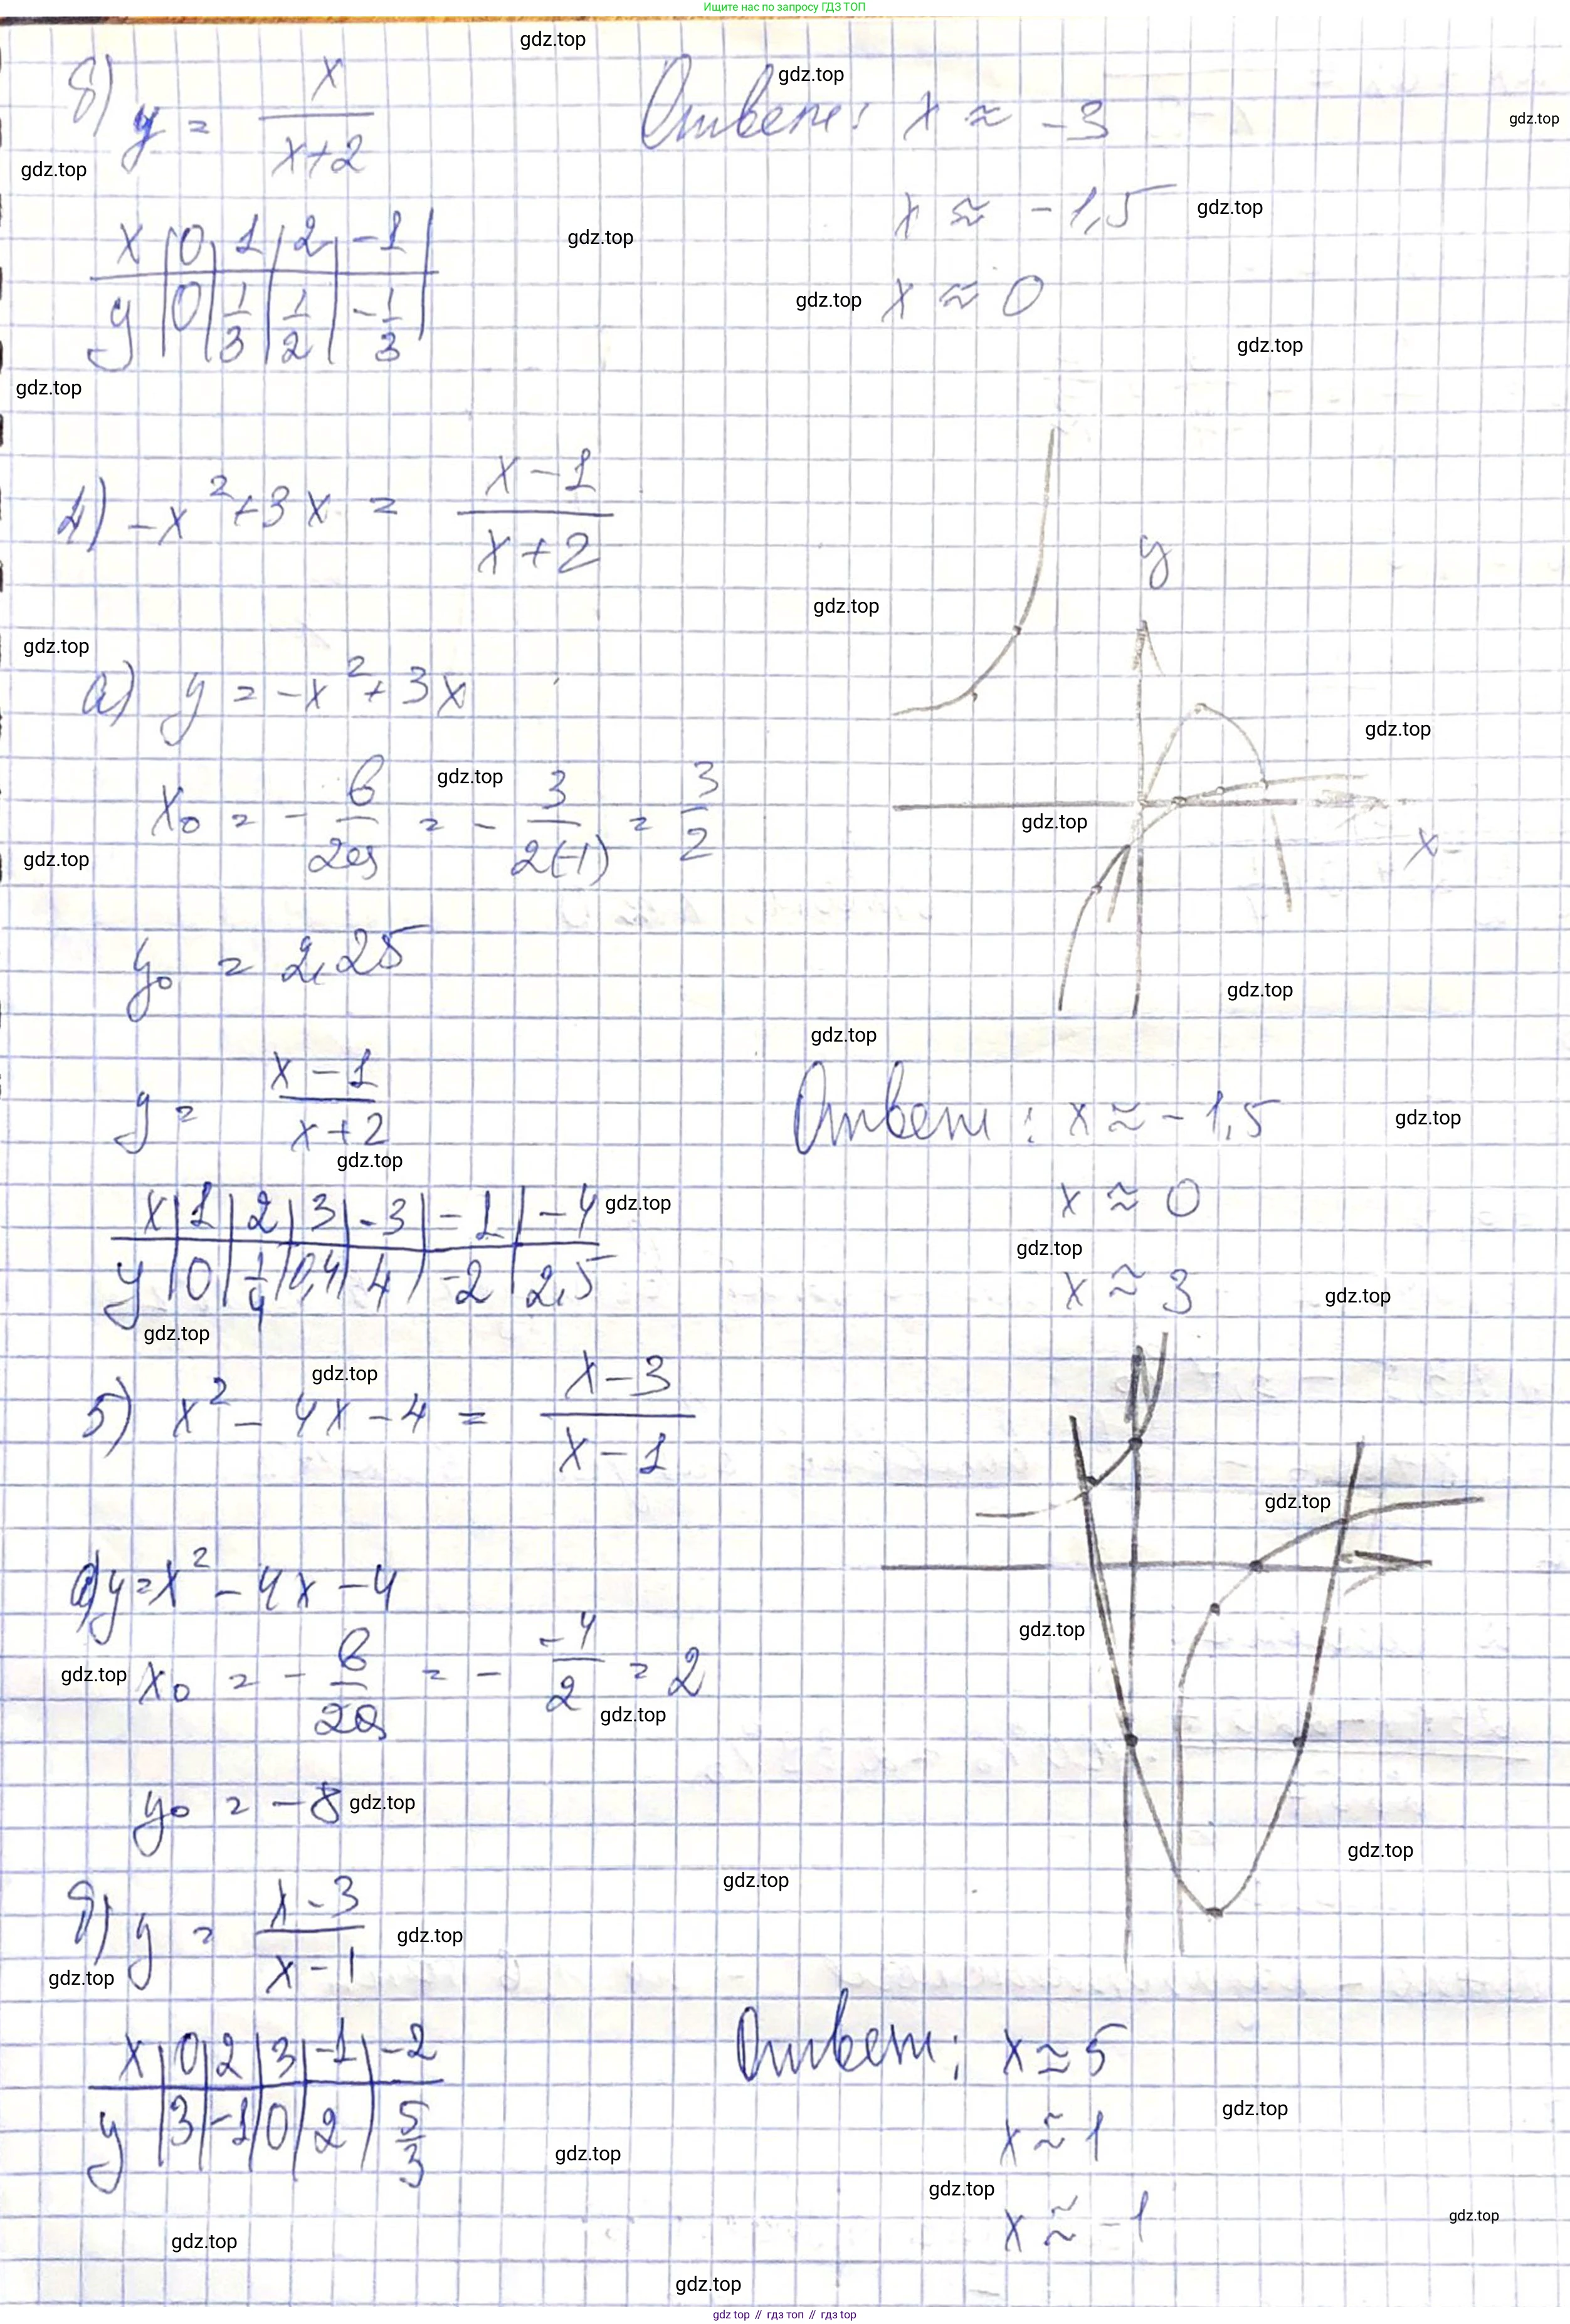 Ищите нас по запросу ГДЗ ТОП
б) y = x/(x+2)
Ответ: x ≈ -3
x ≈ -1,5
x ≈ 0
x | 0 | 1 | 2 | -1
y | 0 | 1/3 | 1/2 | -1/3
4) -x² + 3x = (x-1)/(x+2)
y
x
а) y = -x² + 3x
x₀ = - в/2a = - 3/2(-1) = 3/2
y₀ = 2,25
y = (x-1)/(x+2)
x | 1 | 2 | 3 | -3 | -1 | -4
y | 0 | 1/4 | 0,4 | 4 | -2 | 2,5
Ответ: x ≈ -1,5
x ≈ 0
x ≈ 3
5) x² - 4x - 4 = (x-3)/(x-1)
а) y = x² - 4x - 4
x₀ = - в/2a = - -4/2 = 2
y₀ = -8
б) y = (x-3)/(x-1)
x | 0 | 2 | 3 | -1 | -2
y | 3 | -1 | 0 | 2 | 5/3
Ответ: x ≈ 5
x ≈ 1
x ≈ -1
gdz.top
gdz.top // гдз топ // гдз top